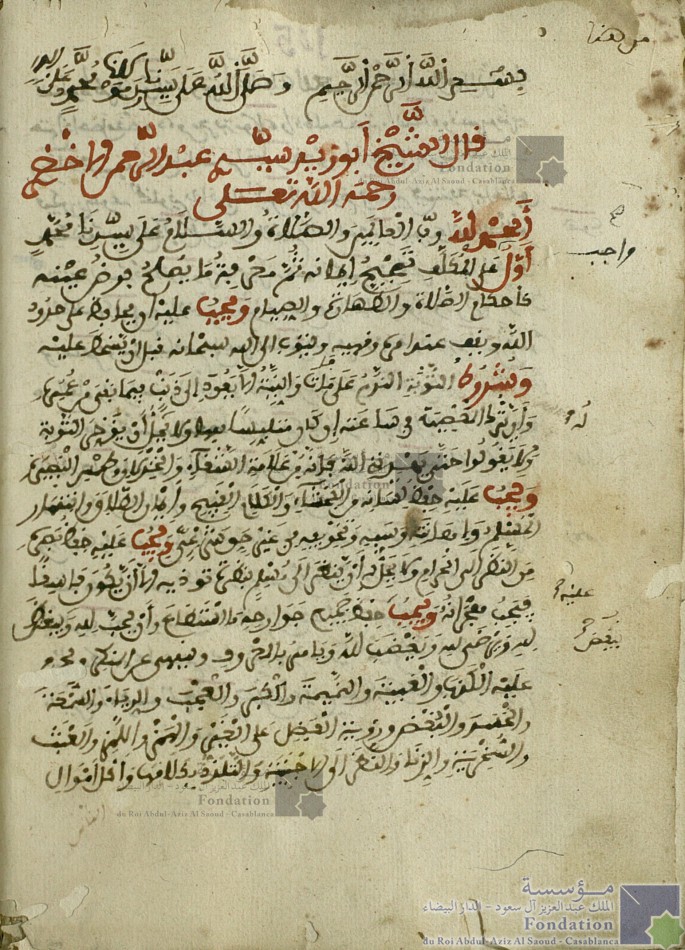 من هنا
بسم الله الرحمن الرحيم وصلى الله على سيدنا ومولانا محمد وعلى آله
قال الشيخ أبو زيد سيدي عبد الرحمن الأخضري
رحمه الله تعالى
الحمد لله رب العالمين والصلاة والسلام على سيدنا محمد
أول على المكلف تصحيح إيمانه ثم معرفة ما يصلح به فرض عينه
صح
واجب
كأحكام الصلاة والطهارة والصيام ويجب عليه أن يحافظ على حدود
الله ويقف عند أمره ونهيه ويتوب إلى الله سبحانه قبل أن يسخط عليه
وشروط التوبة الندم على ما فات والنية ألا يعود إلى ذنب فيما بقي من عمره
وأن يترك المعصية في ساعته إن كان متلبسا بها ولا يحل أن يؤخر التوبة
له
ولا يقول حتى يهديني الله فإنه من علامة الشقاء والخذلان وطمس البصيرة
ويجب عليه حفظ لسانه من الفحشاء والكلام القبيح وأيمان الطلاق وانتهار
المسلم وإهانته وسبه وتخويفه من غير حق شرعي ويجب عليه حفظ بصره
من النظر إلى الحرام ولا يحل له أن ينظر إلى مسلم بنظرة توذيه إلا أن يكون فاسقا
عليه
فيجب هجرانه ويجب حفظ جميع جوارحه ما استطاع وأن يحب لله ويبغض
يبغض
له ويرضى له ويغضب لله ويامر بالمعروف وينهى عن المنكر ويحرم
عليه الكذب والغيبة والنميمة والكبر والعجب والرياء والسمعة
والحسد والبغض ورؤية الفضل على الغير والهمز واللمز والعبث
والسخرية والزنا والنظر إلى الأجنبية والتلذذ بكلامها وأكل أموال
الناس
مؤسسة
الملك عبد العزيز آل سعود - الدار البيضاء
Fondation
du Roi Abdul-Aziz Al Saoud - Casablanca